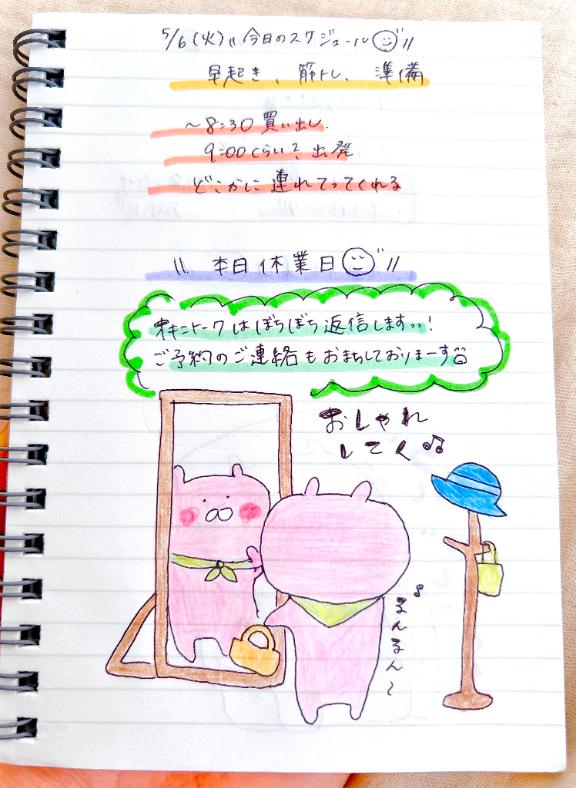 5/6(火)" 今日のスケジュール"
早起き、筋トレ、準備
〜8:30 買い出し
9:00くらい? 出発
どこかに連れてってくれる
\\ 本日休業日 //
オキニトークはぼちぼち返信します..!
ご予約のご連絡もおまちしておりまーす
おしゃれ
してく♫
♪るんるん〜